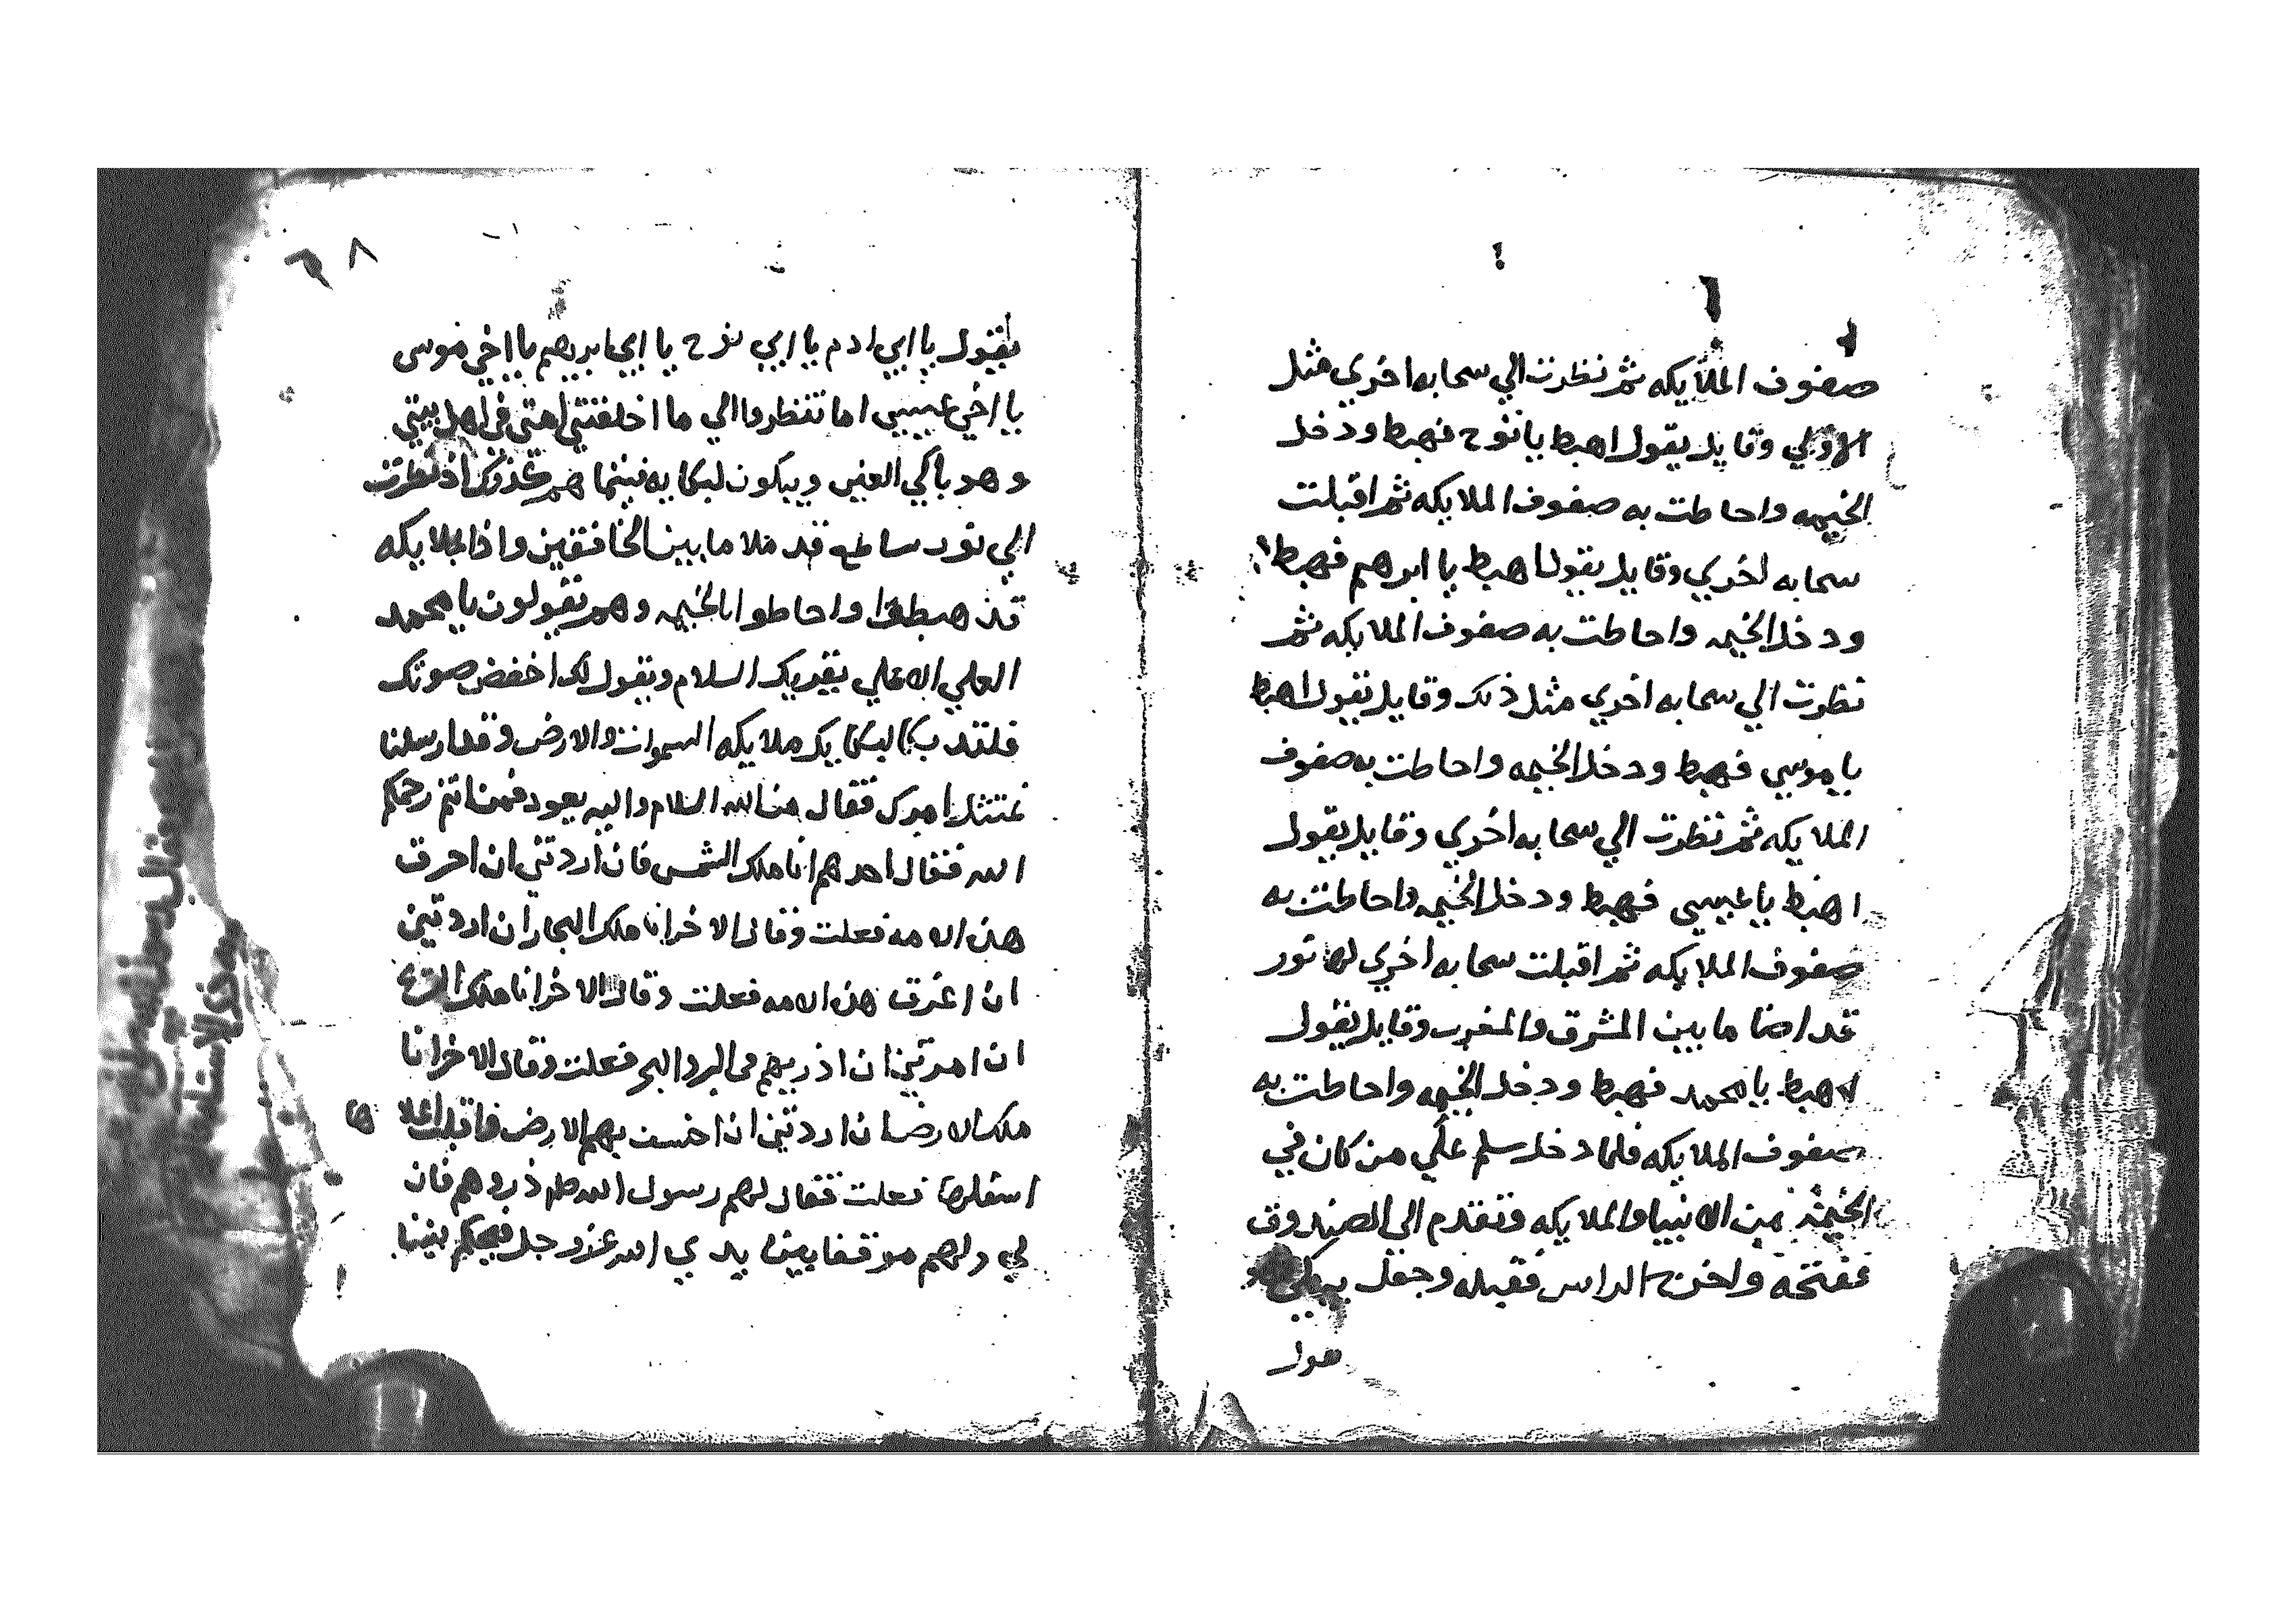 صفوف الملايكه ثم نظرت الي سحابه اخري مثل
الاولي وقايل يقول اهبط يا نوح فهبط ودخل
الخيمه واحاطت به صفوف الملايكه ثم اقبلت
سحابه اخري وقايل يقول اهبط يا ابرهيم فهبط
ودخل الخيمه واحاطت به صفوف الملايكه ثم
نظرت الي سحابه اخري مثل ذلك وقايل يقول اهبط
يا موسي فهبط ودخل الخيمه واحاطت به صفوف
الملايكه ثم نظرت الي سحابه اخري وقايل يقول
اهبط يا عيسي فهبط ودخل الخيمه واحاطت به
صفوف الملايكه ثم اقبلت سحابه اخري لها نور
قد اضا ما بين المشرق والمغرب وقايل يقول
اهبط يا محمد فهبط ودخل الخيمه واحاطت به
صفوف الملايكه فلما دخل سلم علي من كان في
الخيمة من الانبيا والملايكه وتقدم الي الصندوق
ففتحه واخرج الراس فقبله وجعل يبكي
يقول يا ابي ادم يا ابي نوح يا ابي ابريهم يا اخي موسى
يا اخي عيسي اما تنظروا الي ما اخلفتني امتي في اهل بيتي
وهو باكي العين ويبكون لبكايه فبينما هم كذلك اذ نظرت
الي نور ساطع قد ملا ما بين الخافقين واذا بالملايكه
قد هبطوا واحاطوا بالخيمه وهم يقولون يا محمد
العلي الاعلي يقريك السلام ويقول لك اخفض صوتك
فلقد بكا لبكايك ملايكه السموات والارض وقد ارسلنا
نمتثل امرك فقال من الله السلام واليه يعود فمن انتم رحمكم
الله فقال احدهم انا ملك الشمس فان اردتني ان احرق
هذه الامه فعلت وقال الاخر انا ملك البحار ان اردتني
ان اغرق هذه الامه فعلت وقال الاخر انا ملك
ان امرتني ان اذريهم في البر والبحر فعلت وقال الاخر انا
ملك الارض ان اردتني ان اخسف بهم الارض فاقلب اعلاها
اسفلها فعلت فقال لهم رسول الله ذروهم فان
لي ولهم موقفا بين يدي الله عز وجل فيحكم بيننا